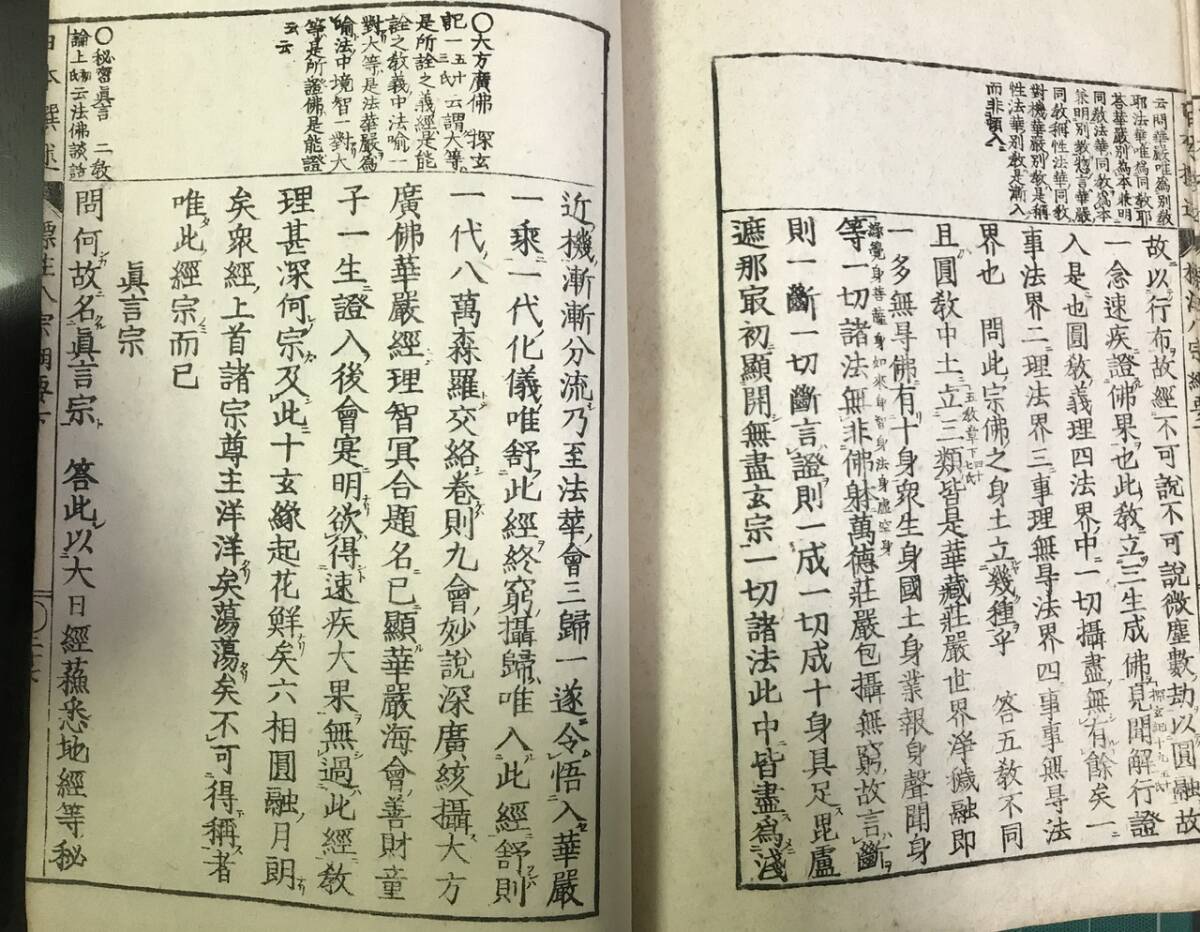 云問華嚴唯爲別教
耶法華唯爲同教耶
答華嚴別爲本兼明
同教法華同教爲本
兼明別教惣言華嚴
同教稱性法華同教
對機華嚴別教是稱
性法華別教是漸入
而非頓入
故以行布故經不可說不可說微塵數劫以圓融故
一念速疾證佛果也此教立三生成佛見聞解行證
入是也圓教義理四法界中一切攝盡無有餘矣一
事法界二理法界三事理無导法界四事事無导法
界也 問此宗佛之身土立幾種乎 答五教不同
且圓教中土立三類皆是華藏莊嚴世界淨穢融即
五教章下
一多無导佛有十身衆生身國土身業報身聲聞身
緣覺身菩薩身如來身智身法身虛空身
等一切諸法無非佛身萬德莊嚴包攝無窮故言斷
則一斷一切斷言證則一成一切成十身具足毘盧
遮那㝡初顯開無盡玄宗一切諸法此中皆盡爲淺
〇大方廣佛 探玄
記一 云謂大等
是所詮之義經是能
詮之教義中法喻一
對大等是法華嚴爲
喻法中境智一對大
等是所證佛是能證
云云
近機漸漸分流乃至法華會三歸一遂令悟入華嚴
一乘一代化儀唯舒此經終窮攝歸唯入此經舒則
一代八萬森羅交絡卷則九會妙說深廣該攝大方
廣佛華嚴經理智冥合題名已顯華嚴海會善財童
子一生證入後會寔明欲得速疾大果無過此經教
理甚深何宗及此十玄緣起花鮮矣六相圓融月朗
矣衆經上首諸宗尊主洋洋矣蕩蕩矣不可得稱者
唯此經宗而已
眞言宗
〇秘密眞言 二教
論上 云法佛談話
問何故名眞言宗 答此以大日經蘓悉地經等秘